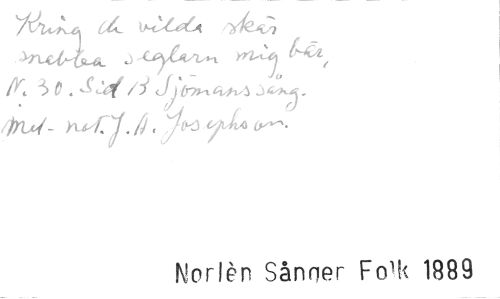 Kring de vilda skär
snabba seglarn mig bär,
N. 30. Sid 13 Sjömanssång.
med not. J. A. Josephson.
Norlèn Sånger Folk 1889